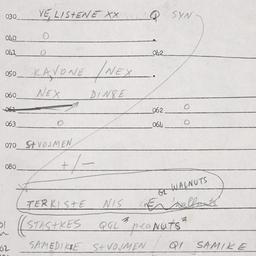 030 VE, LISTENE XX Q SYN
040 O
041 O 042
050 KAVONE / NEX
060 NEX DINGE
061 062 O
063 O 064 O
070 STVOJMEN
080 +/-
GL WALNUTS
TERKISTE NIS
01 STASTKES QGL* peaNUTS*
02 SAMEDIKE STVOJMEN / QI SAMIKE